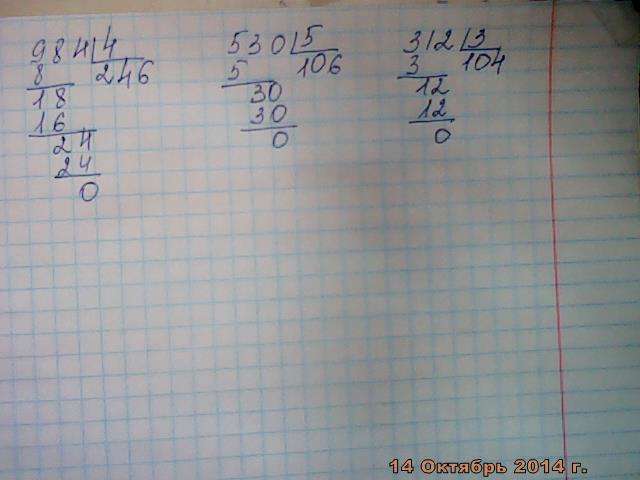 984 4 530 5 312 3
8 246 5 106 3 104
18 30 12
16 30 12
24 0 0
24
0
14 Октябрь 2014 г.